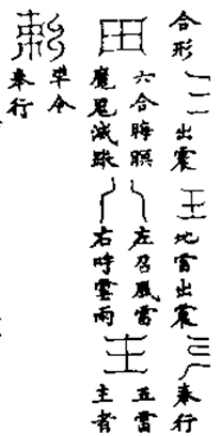 合形
出震
地雷出震
奉行
六合晦暝
魔鬼滅跡
左召風雷
右呼雲雨
五雷
主者
令
奉行